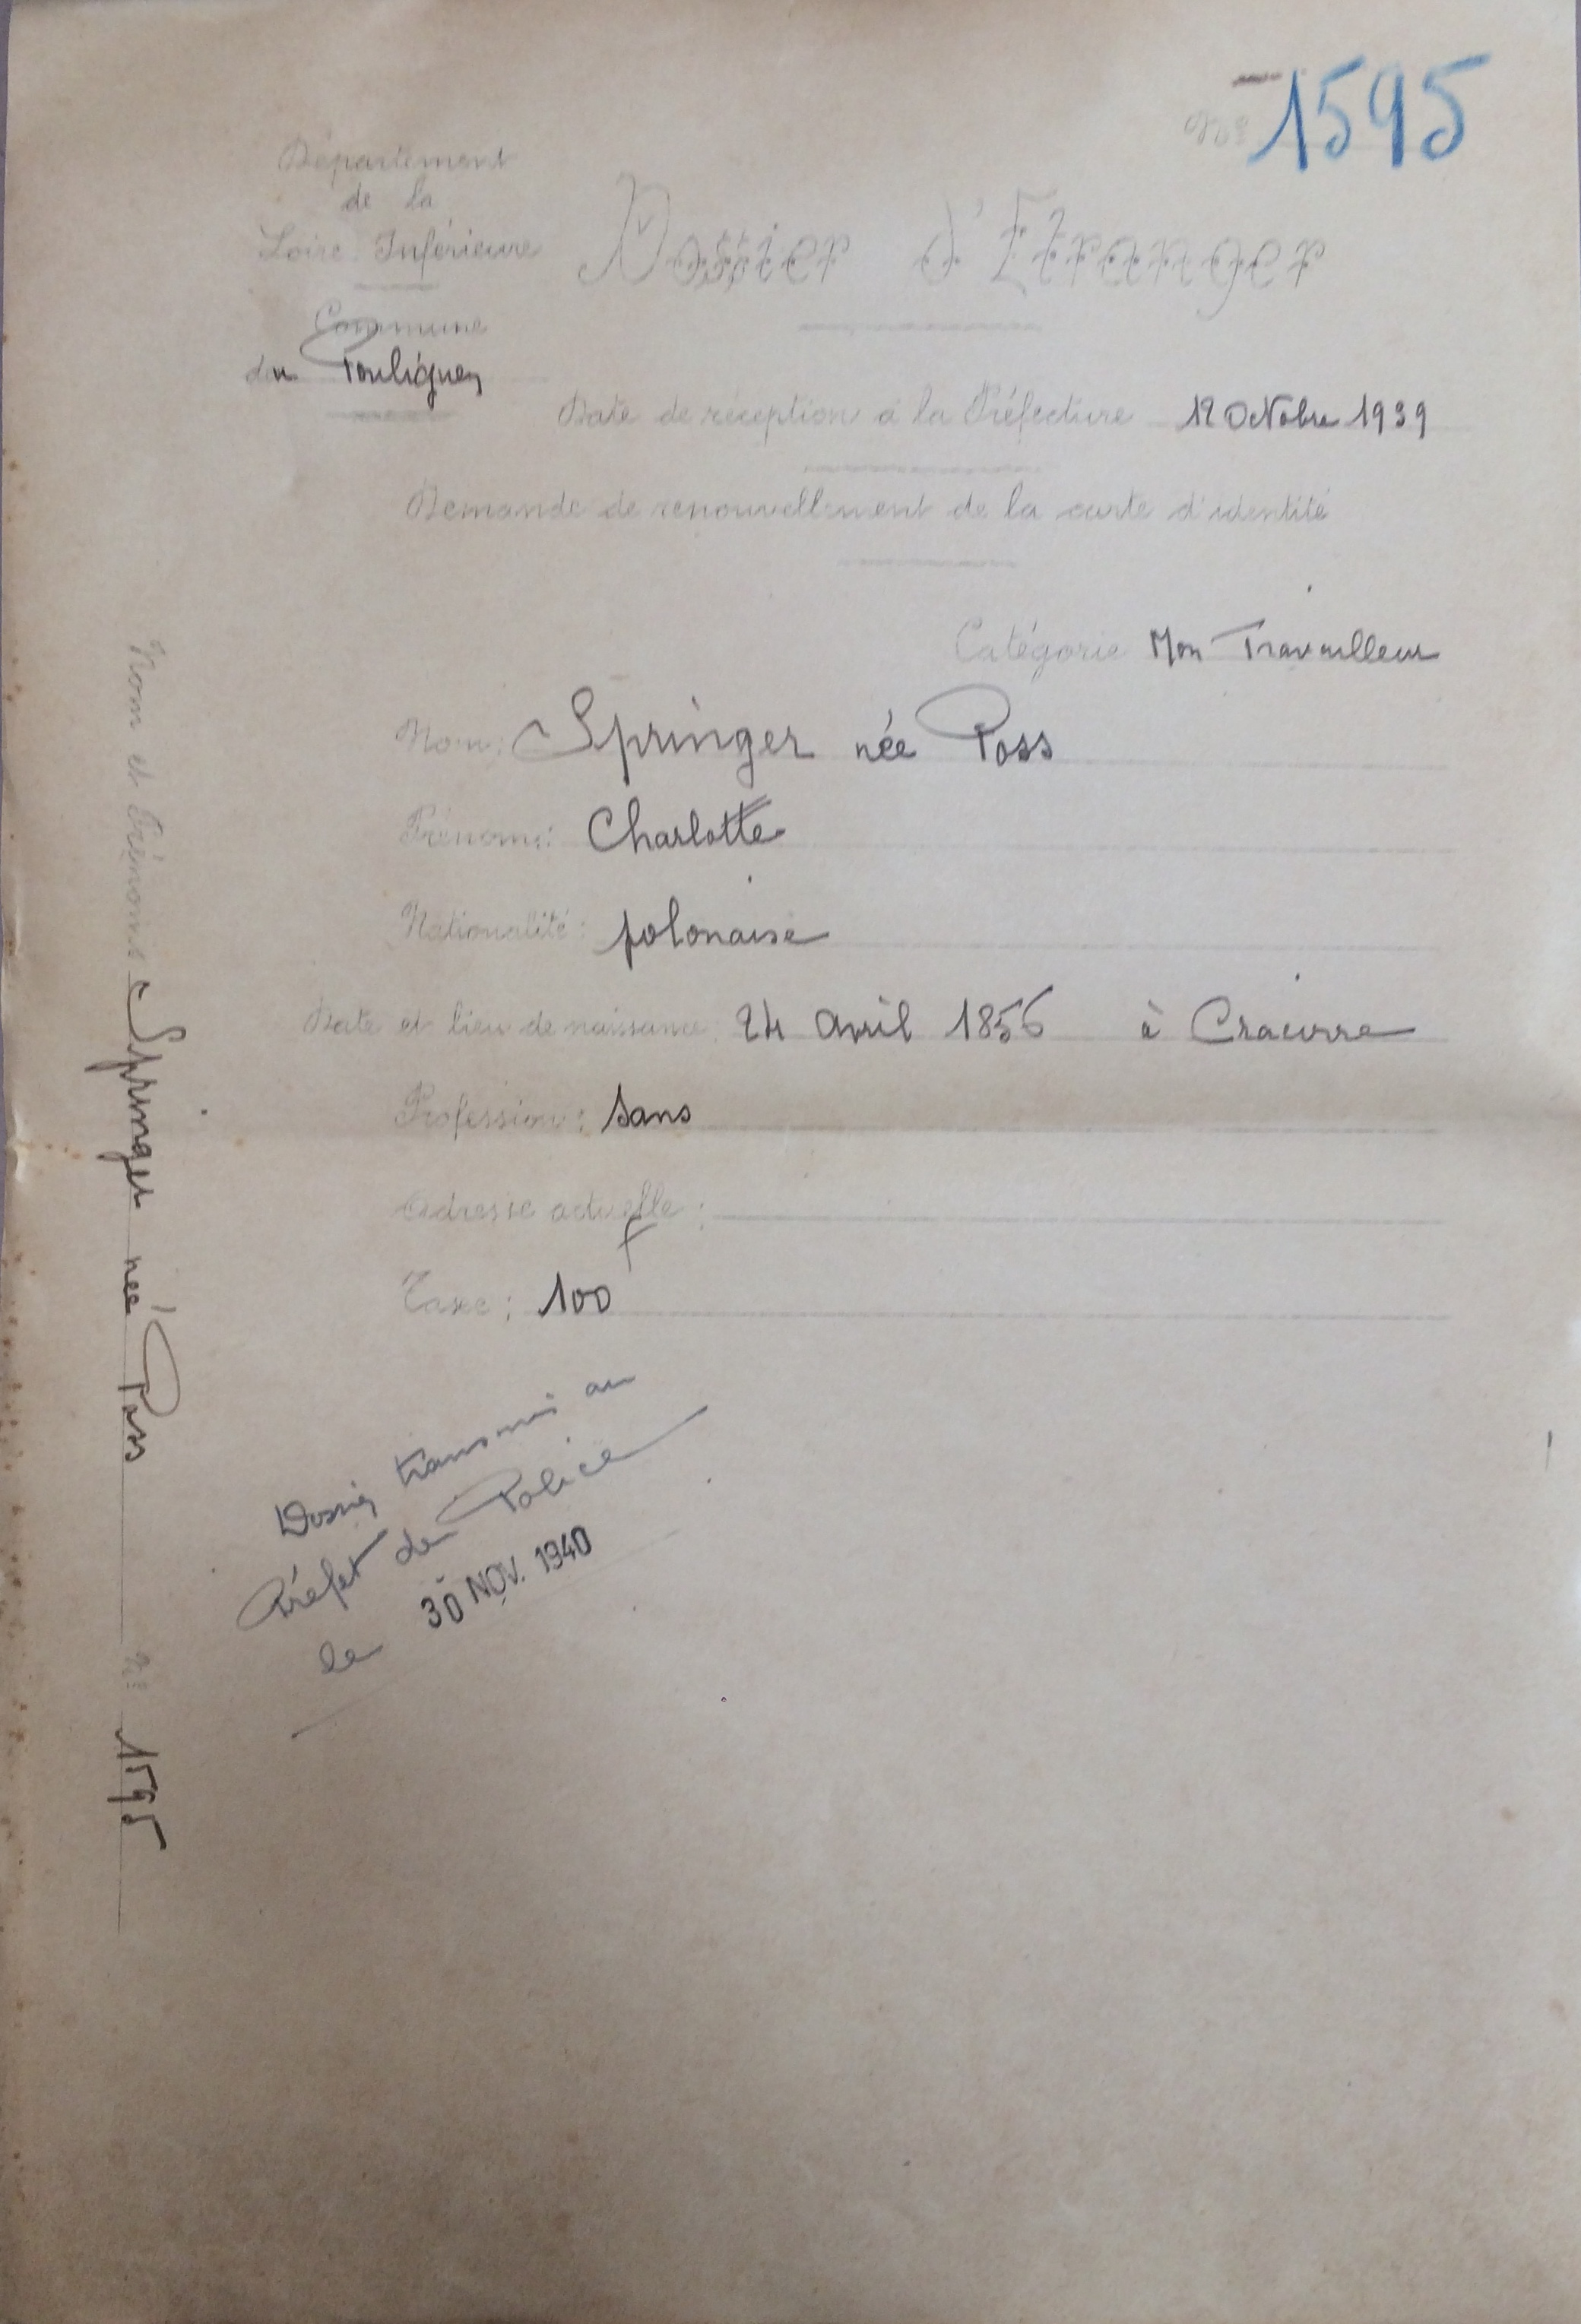 N° 1595
Département
de la
Loire-Inférieure
Dossier d'Etranger
Commune
du Pouliguen
Date de réception à la Préfecture 12 Octobre 1939
Demande de renouvellement de la carte d'identité
Catégorie Non Travailleur
Nom: Springer née Poss
Prénoms: Charlotte
Nationalité: polonaise
Date et lieu de naissance: 24 avril 1856 à Cracovie
Profession: sans
Adresse actuelle:
Taxe: 100 f
Dossier transmis au
Préfet de Police
le 30 NOV. 1940
Nom et Prénoms Springer née Poss N° 1595